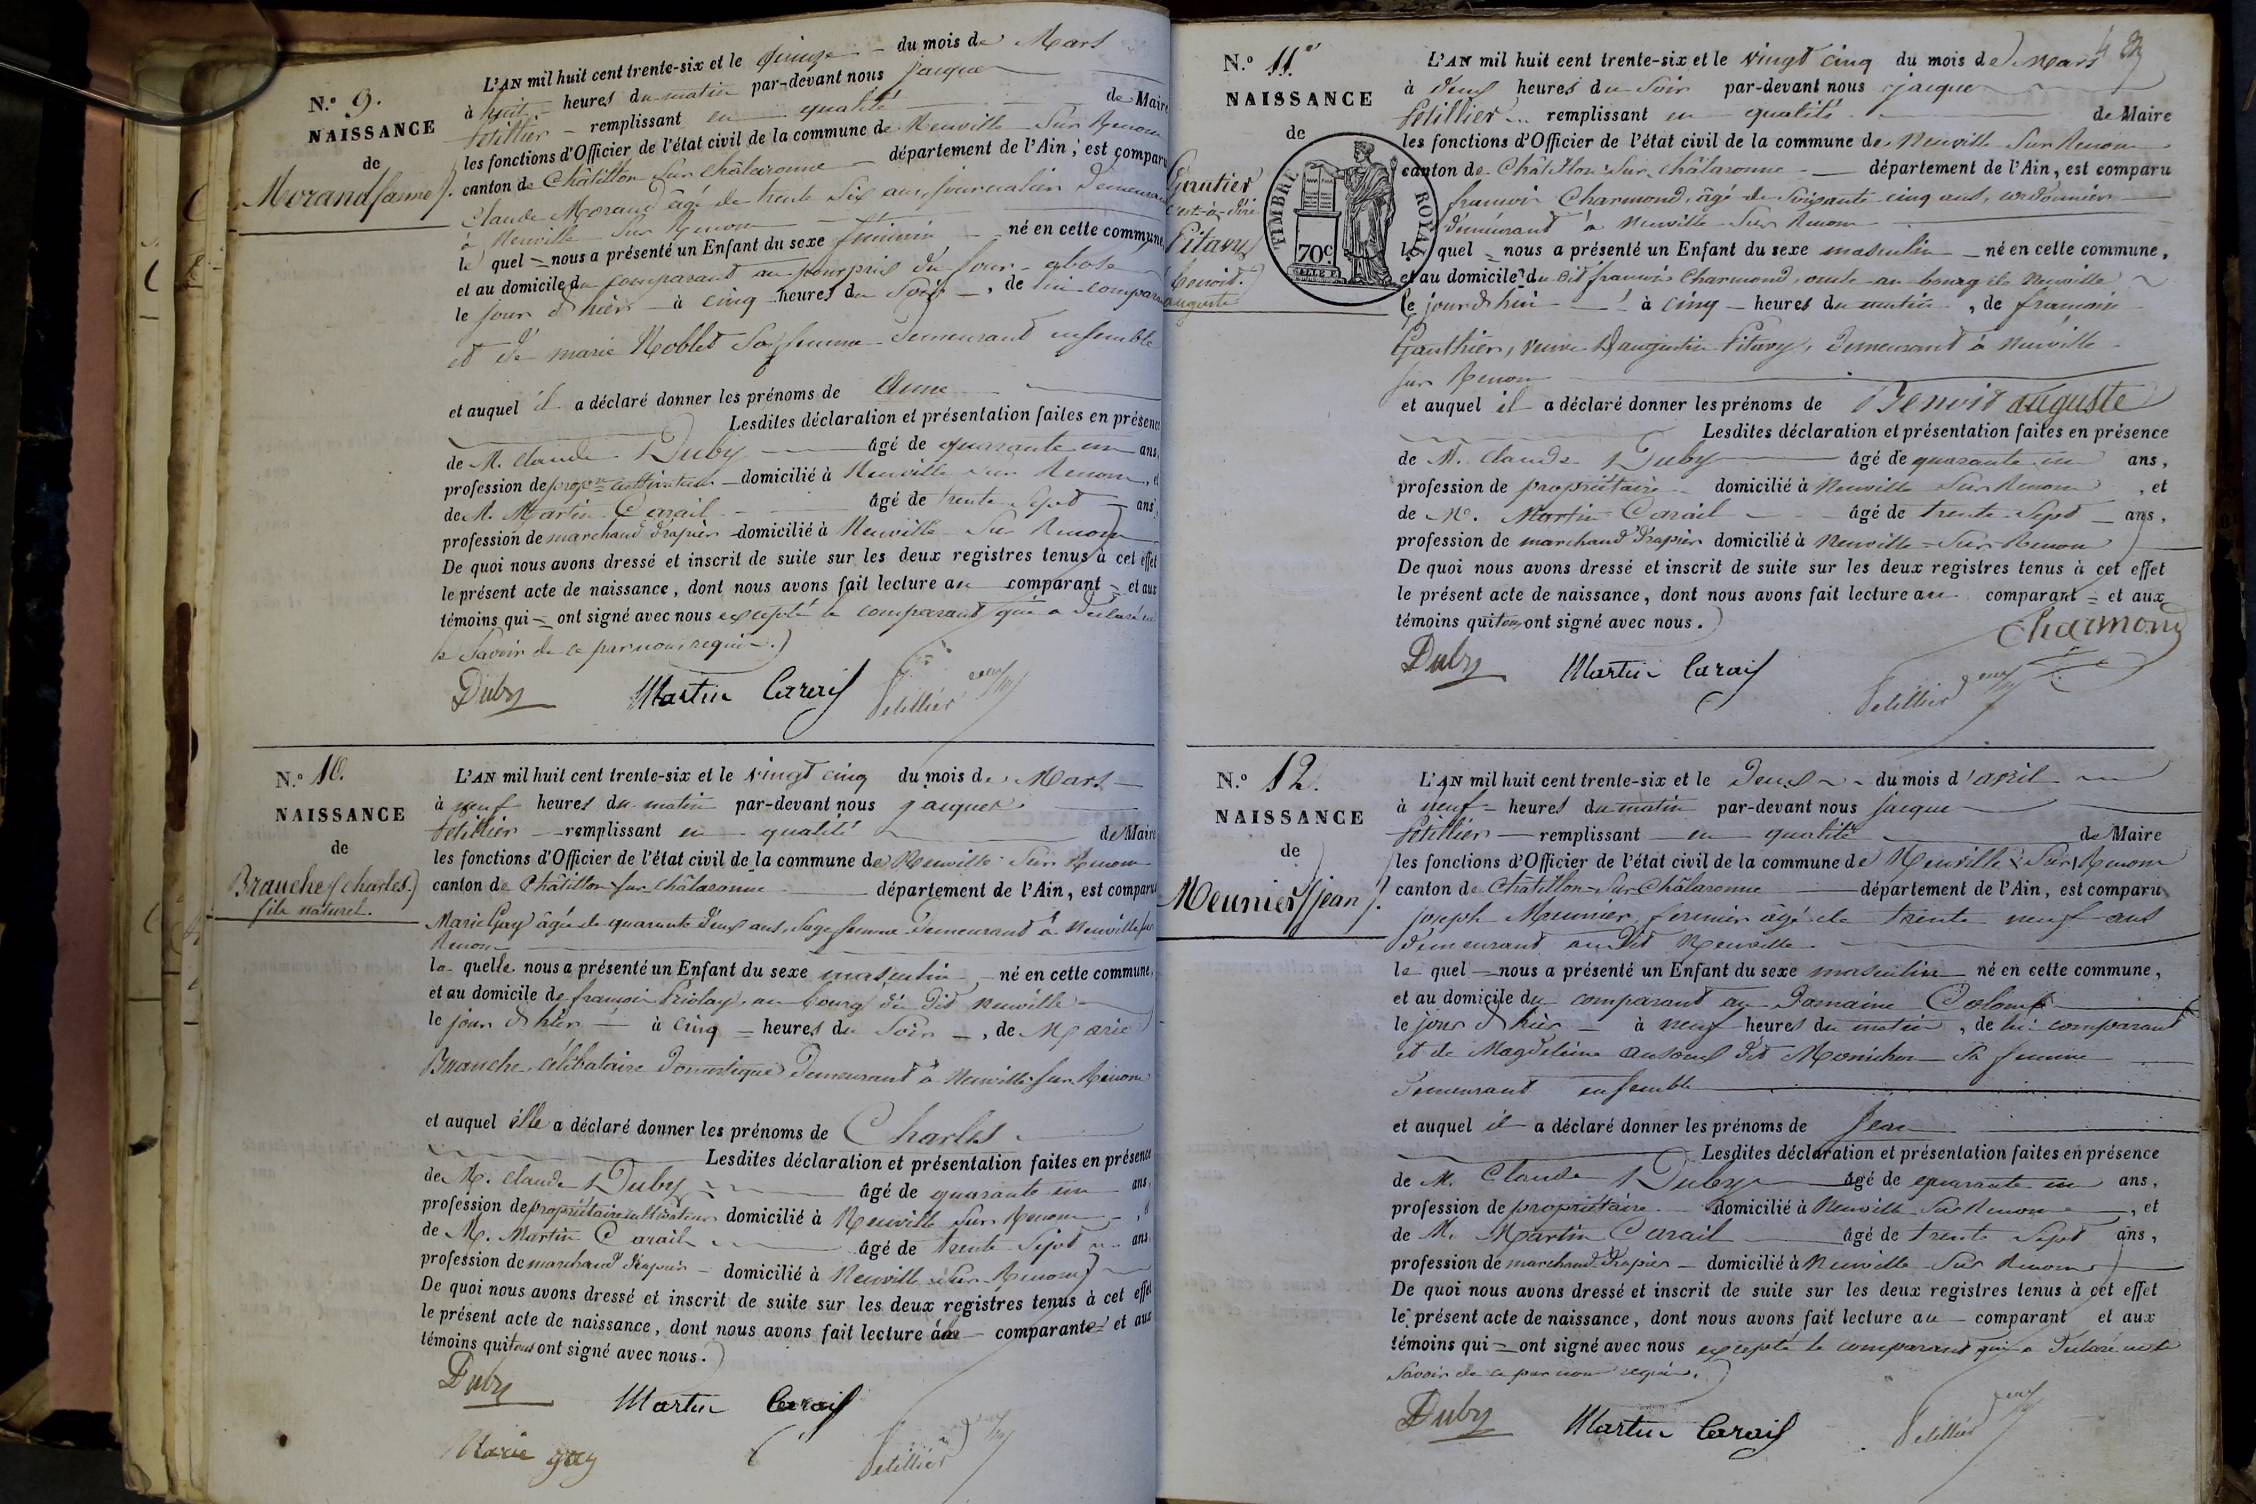 N.o 9.
NAISSANCE
de
Morand (anne).
L'AN mil huit cent trente-six et le quinze du mois de Mars
à huit heures du matin par-devant nous jacques
Petillier remplissant en qualité de Maire
les fonctions d'Officier de l'état civil de la commune de Neuville Sur Renom
canton de Châtillon sur châlaronne département de l'Ain, est comparu
Claude Morand âgé de trente Six ans, journalier demeurant
à Neuville Sur Renom
le quel nous a présenté un Enfant du sexe féminin né en cette commune,
et au domicile du comparant au
le jour d'hier à cinq heures du Soir, de lui comparant
et de marie Noblet Sa femme demeurant ensemble
et auquel il a déclaré donner les prénoms de Anne
Lesdites déclaration et présentation faites en présence
de M. claude Duby âgé de quarante un ans,
profession de prop.re cultivateur domicilié à Neuville sur Renom, et
de M. Martin Carail âgé de trente Sept ans,
profession de marchand drapier domicilié à Neuville Sur Renom
De quoi nous avons dressé et inscrit de suite sur les deux registres tenus à cet effet
le présent acte de naissance, dont nous avons fait lecture au comparant et aux
témoins qui ont signé avec nous excepté le comparant qui a déclaré ne
le Savoir de ce par nous requis.
Duby Martin Carail Petillier
N.o 10.
NAISSANCE
de
Branche (charles.)
fils naturel.
L'AN mil huit cent trente-six et le vingt cinq du mois de Mars
à neuf heures du matin par-devant nous jacques
Petillier remplissant en qualité de Maire
les fonctions d'Officier de l'état civil de la commune de Neuville Sur Renom
canton de Châtillon sur châlaronne département de l'Ain, est comparu
Marie Gay âgée de quarante deux ans, Sage femme demeurant à Neuville sur
Renom
la quelle nous a présenté un Enfant du sexe masculin né en cette commune,
et au domicile de françois au bourg du dit Neuville
le jour d'hier à cinq heures du Soir, de Marie
Branche célibataire domestique demeurant à Neuville sur Renom
et auquel élle a déclaré donner les prénoms de Charles
Lesdites déclaration et présentation faites en présence
de M. claude Duby âgé de quarante un ans,
profession de propriétaire cultivateur domicilié à Neuville Sur Renom, et
de M. Martin Carail âgé de trente Sept ans,
profession de marchand drapier domicilié à Neuville Sur Renom
De quoi nous avons dressé et inscrit de suite sur les deux registres tenus à cet effet
le présent acte de naissance, dont nous avons fait lecture à la comparante et aux
témoins qui tous ont signé avec nous.
Duby Martin Carail
Marie gay Petillier
N.o 11.
NAISSANCE
de
Gautier
c'est-à-dire
Pitavy
benoit.
auguste
TIMBRE ROYAL
70c
L'AN mil huit cent trente-six et le vingt cinq du mois de Mars
à deux heures du Soir par-devant nous jacques
Petillier remplissant en qualité de Maire
les fonctions d'Officier de l'état civil de la commune de Neuville Sur Renom
canton de Châtillon Sur châlaronne département de l'Ain, est comparu
françois Charmond, âgé de Soixante cinq ans, cordonnier
demeurant à Neuville Sur Renom
le quel nous a présenté un Enfant du sexe masculin né en cette commune,
et au domicile du dit françois Charmond, au bourg de Neuville
le jour d'hui à cinq heures du matin, de françoise
Gauthier, veuve d'augustin Pitavy, demeurant à Neuville
sur Renom
et auquel il a déclaré donner les prénoms de Benoit auguste
Lesdites déclaration et présentation faites en présence
de M. Claude Duby âgé de quarante un ans,
profession de propriétaire domicilié à Neuville Sur Renom, et
de M. Martin Carail âgé de trente Sept ans,
profession de marchand drapier domicilié à Neuville Sur Renom
De quoi nous avons dressé et inscrit de suite sur les deux registres tenus à cet effet
le présent acte de naissance, dont nous avons fait lecture au comparant et aux
témoins qui tous ont signé avec nous.
Charmond
Duby Martin Carail Petillier
N.o 12.
NAISSANCE
de
Meunier (jean).
L'AN mil huit cent trente-six et le Deux du mois d'avril
à neuf heures du matin par-devant nous jacques
Petillier remplissant en qualité de Maire
les fonctions d'Officier de l'état civil de la commune de Neuville Sur Renom
canton de Châtillon Sur Châlaronne département de l'Ain, est comparu
joseph Meunier, fermier âgé de trente neuf ans
demeurant au dit Neuville
le quel nous a présenté un Enfant du sexe masculin né en cette commune,
et au domicile du comparant au Domaine
le jour d'hier à neuf heures du matin, de lui comparant
et de Magdeleine dit Monichon Sa femme
demeurant ensemble
et auquel il a déclaré donner les prénoms de Jean
Lesdites déclaration et présentation faites en présence
de M. Claude Duby âgé de quarante un ans,
profession de propriétaire domicilié à Neuville Sur Renom, et
de M. Martin Carail âgé de trente Sept ans,
profession de marchand drapier domicilié à Neuville Sur Renom
De quoi nous avons dressé et inscrit de suite sur les deux registres tenus à cet effet
le présent acte de naissance, dont nous avons fait lecture au comparant et aux
témoins qui ont signé avec nous excepté le comparant qui a déclaré ne le
Savoir de ce par nous requis.
Duby Martin Carail Petillier